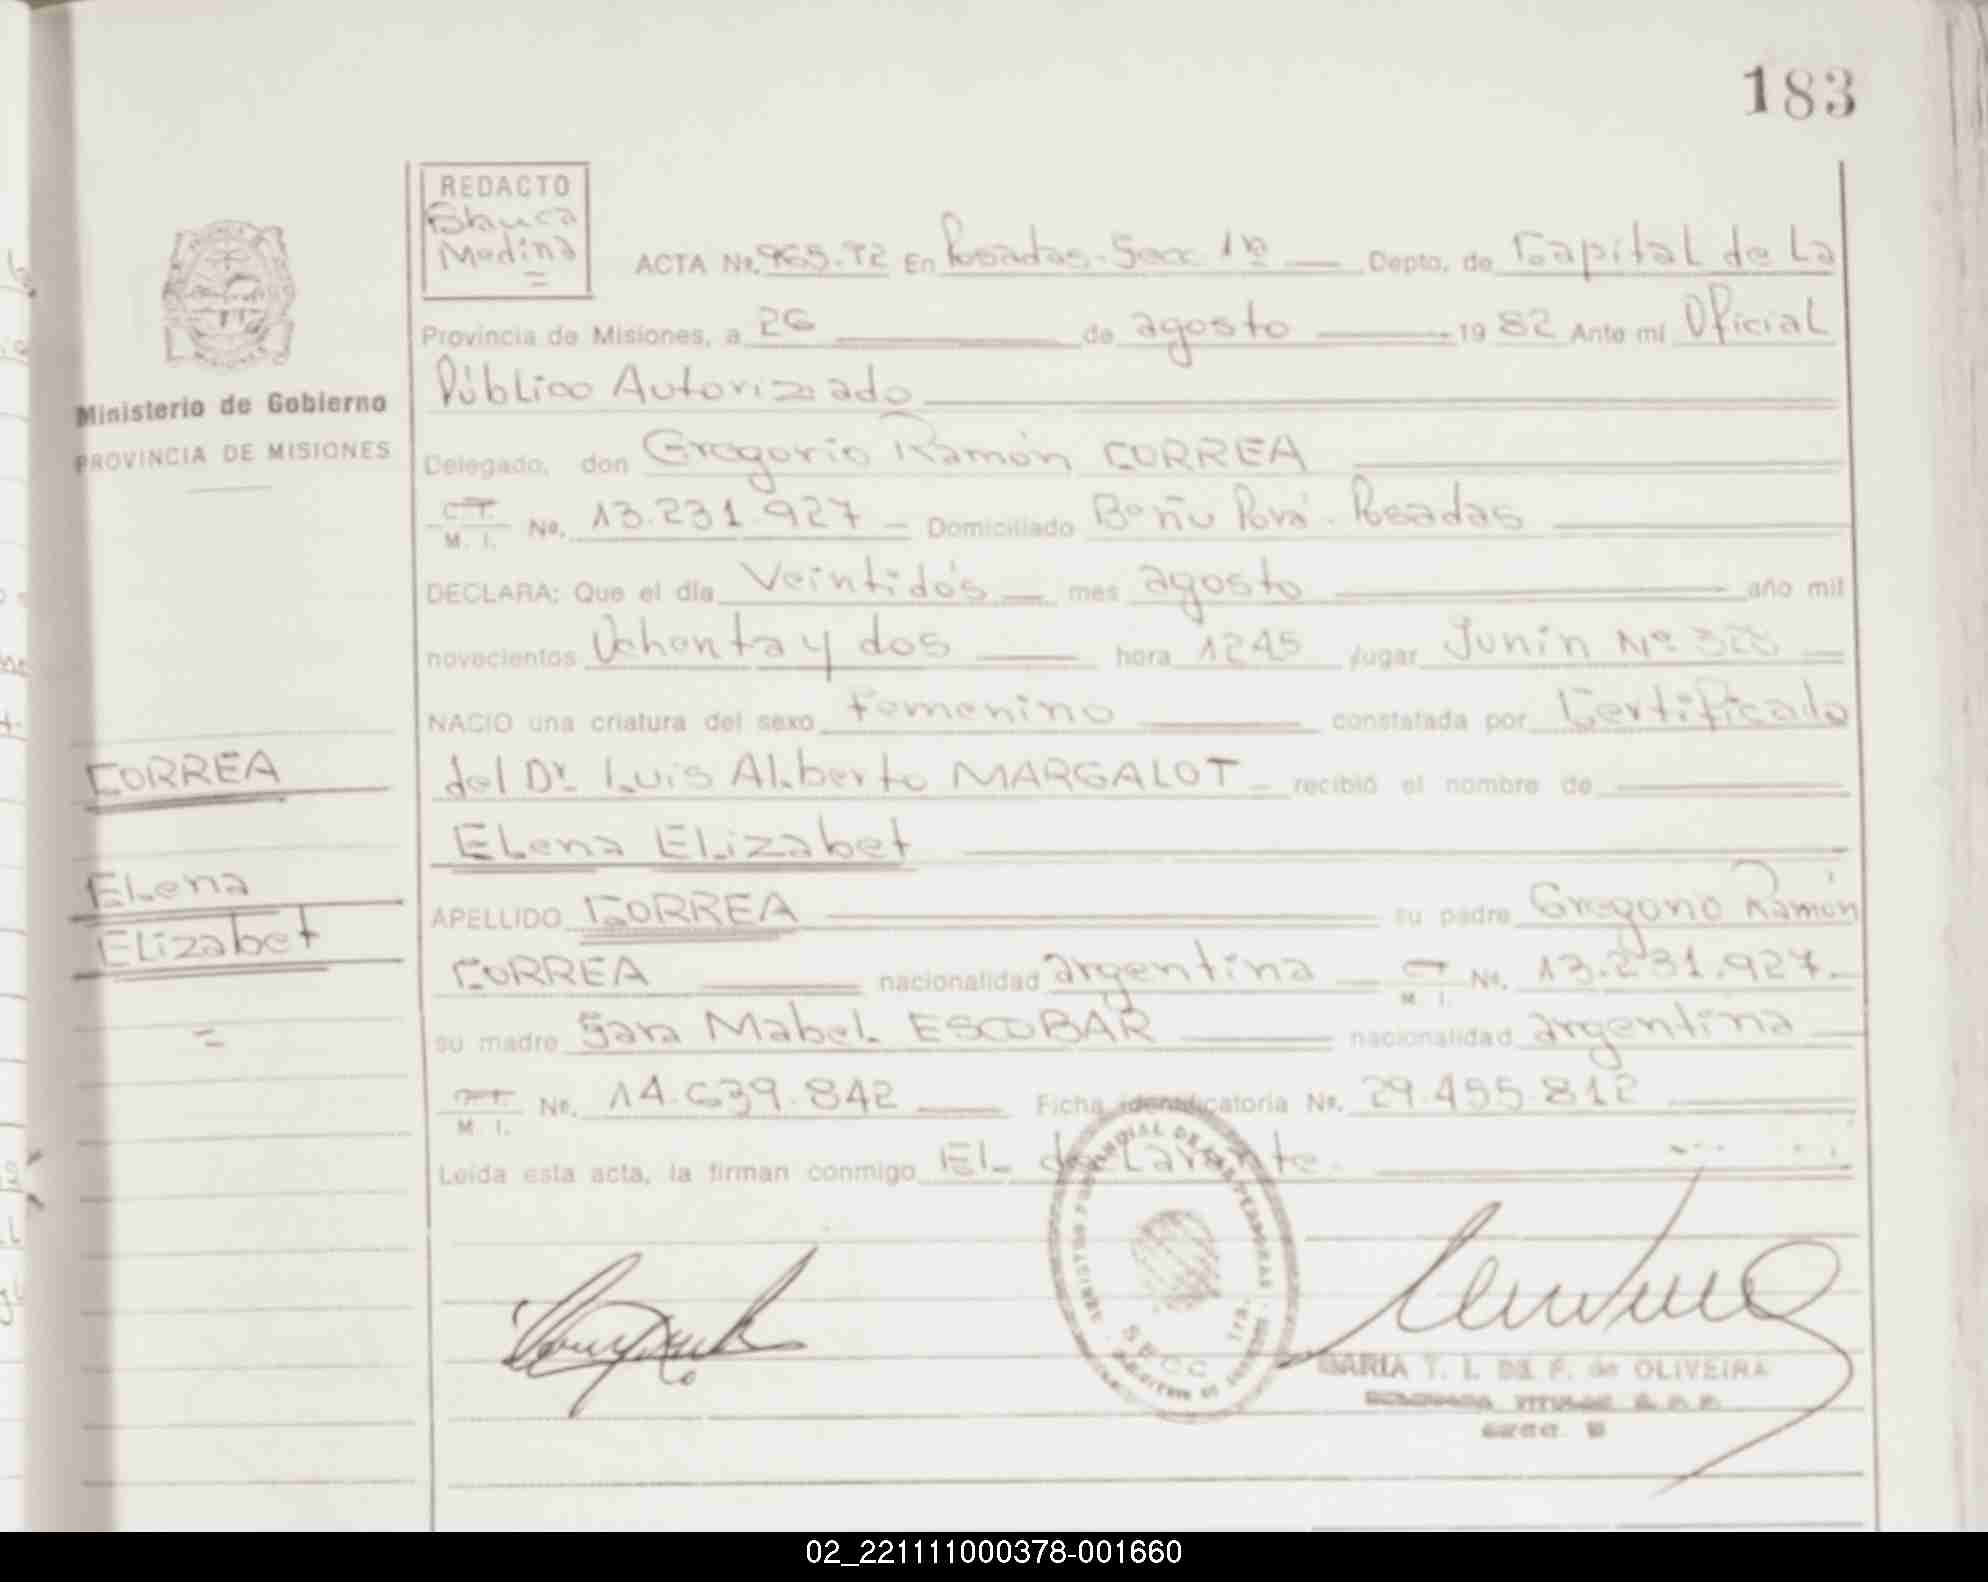 183
REDACTO
Blanca
Medina
ACTA Nº. 965.T2 En Posadas-Secc 1ª Depto. de Capital de La
Provincia de Misiones, a 26 de agosto 1982 Ante mí Oficial
Público Autorizado
Ministerio de Gobierno
PROVINCIA DE MISIONES
Delegado, don Gregorio Ramón CORREA
C.I. M. I. Nº. 13.231.927 Domiciliado Bº Ñu Porá. Posadas
DECLARA: Que el día Veintidós mes agosto año mil
novecientos Ochenta y dos hora 1245 lugar Junín Nº
NACIO una criatura del sexo Femenino constatada por Certificado
CORREA
del Dr. Luis Alberto MARGALOT recibió el nombre de
Elena Elizabet
Elena
Elizabet
APELLIDO CORREA su padre Gregorio Ramón
CORREA nacionalidad argentina M. I. Nº. 13.231.927.
su madre Sara Mabel ESCOBAR nacionalidad argentina
M. I. Nº. 14.639.842 Ficha identificatoria Nº. 29.455.812
Leída esta acta, la firman conmigo El declarante.
REGISTRO PROVINCIAL DE LAS PERSONAS
SECC 1ra.
MARIA T. I. DE F. de OLIVEIRA
02_221111000378-001660